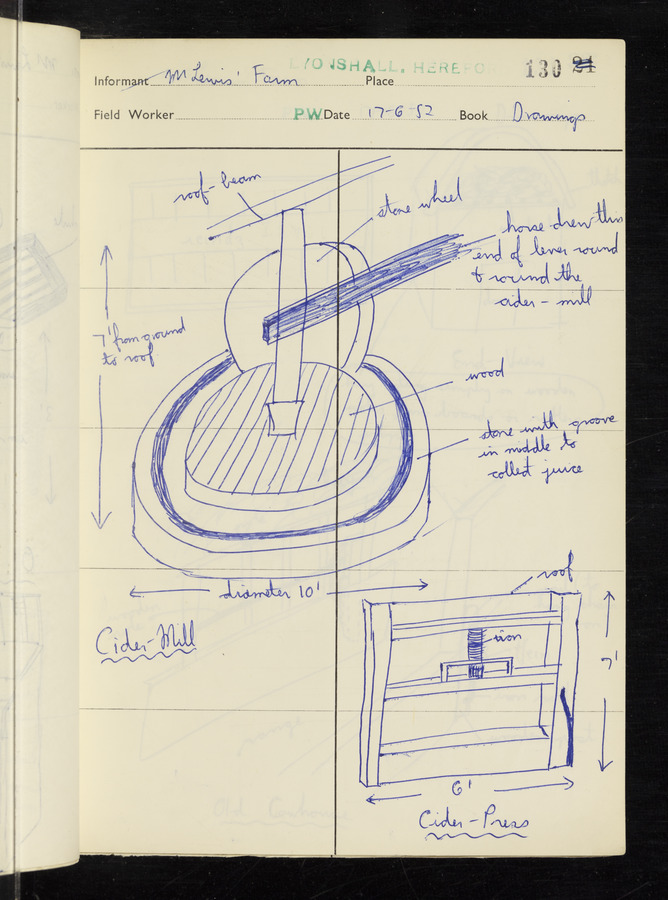 LYONSHALL, HEREFO
130 21
Informant Mr Lewis' Farm Place
Field Worker PW Date 17-6-52 Book Drawings
roof-beam
stone wheel
horse drew this
end of lever round
& round the
cider-mill
7' from ground
to roof
wood
stone with groove
in middle to
collect juice
diameter 10'
Cider-Mill
roof
iron
7'
6'
Cider-Press